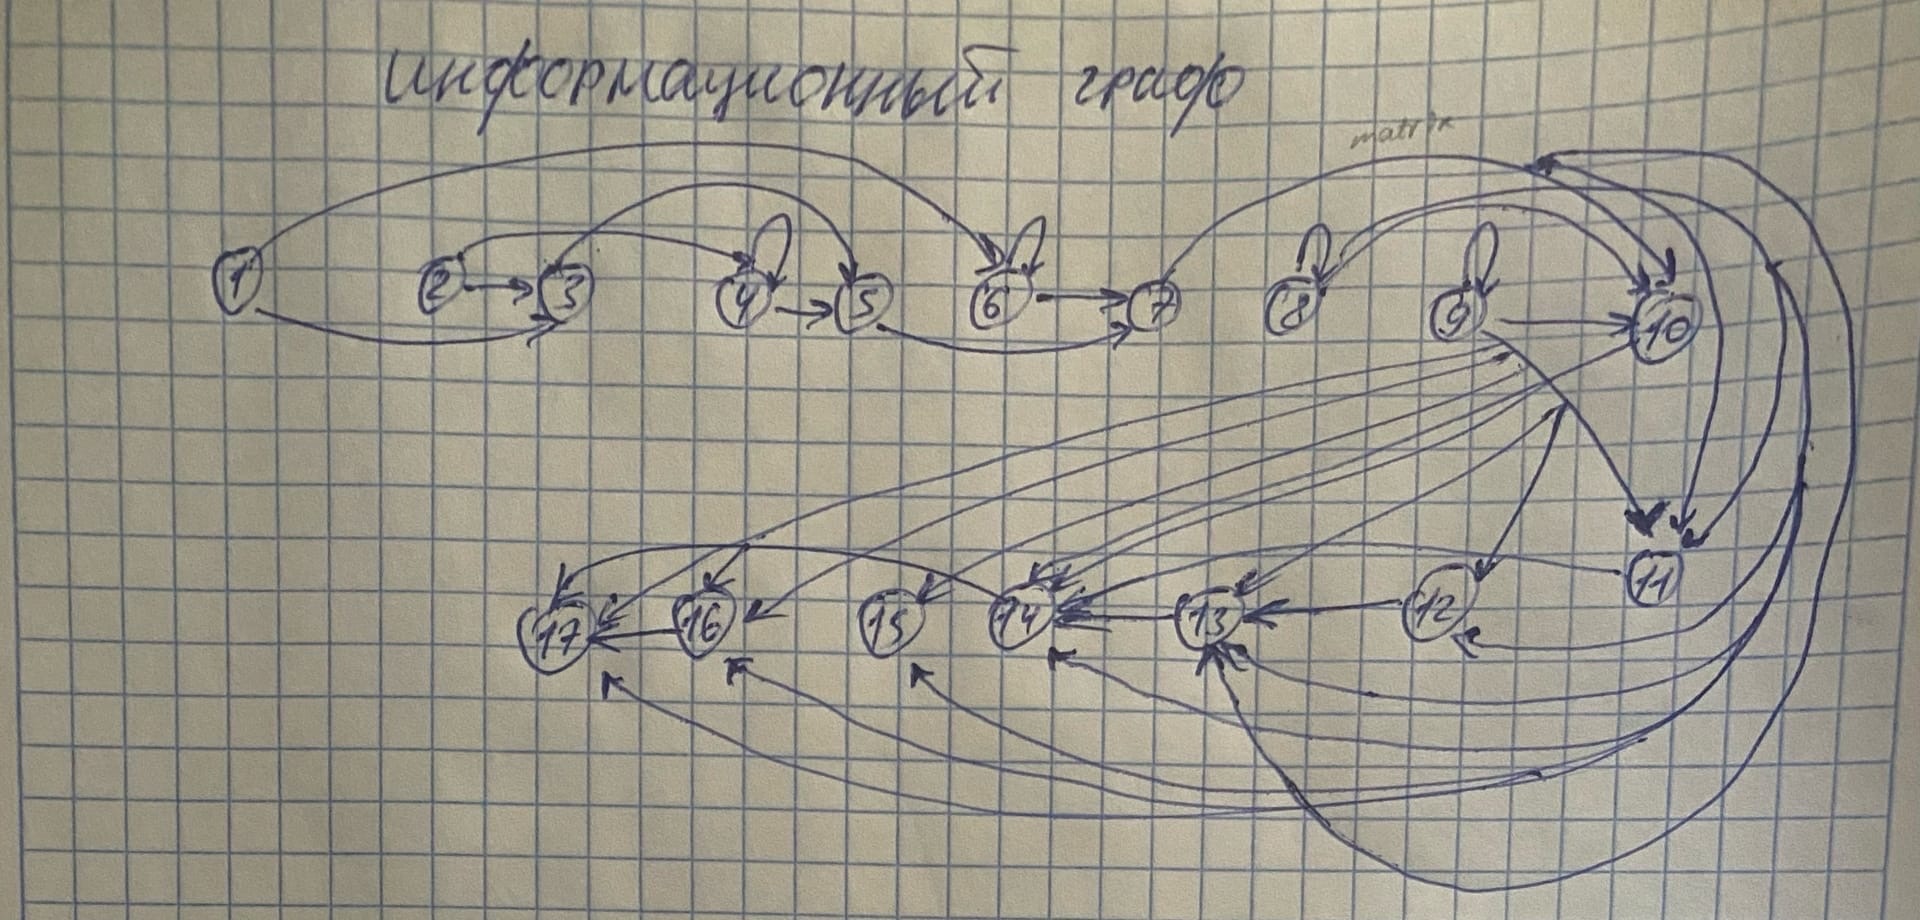 информационный граф
matrix
1 2 3 4 5 6 7 8 9 10
17 16 15 14 13 12 11